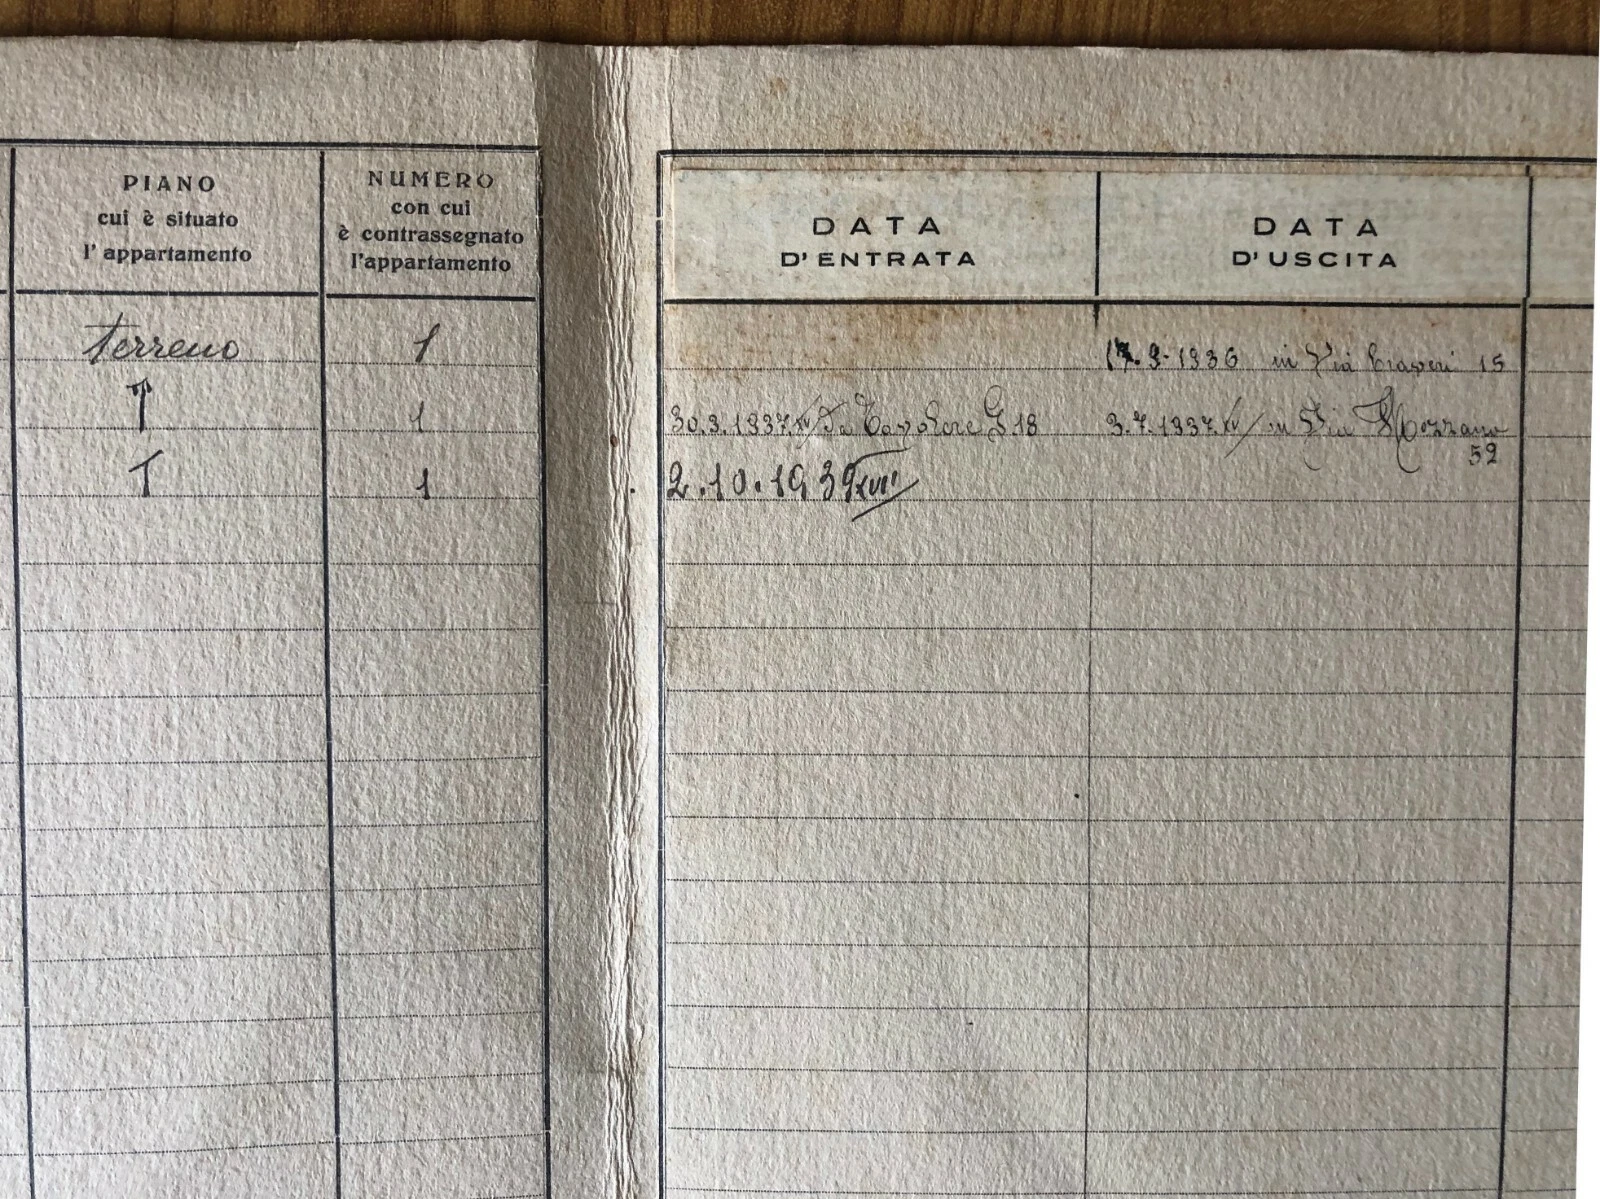 PIANO
cui è situato
l'appartamento
NUMERO
con cui
è contrassegnato
l'appartamento
DATA
D'ENTRATA
DATA
D'USCITA
terreno 1 9-1936 in Via 15
T 1 30.3.1937.XV da G 18 3.7.1937.XV in Via Mozzano
52
T 1 2.10.1939 XVII